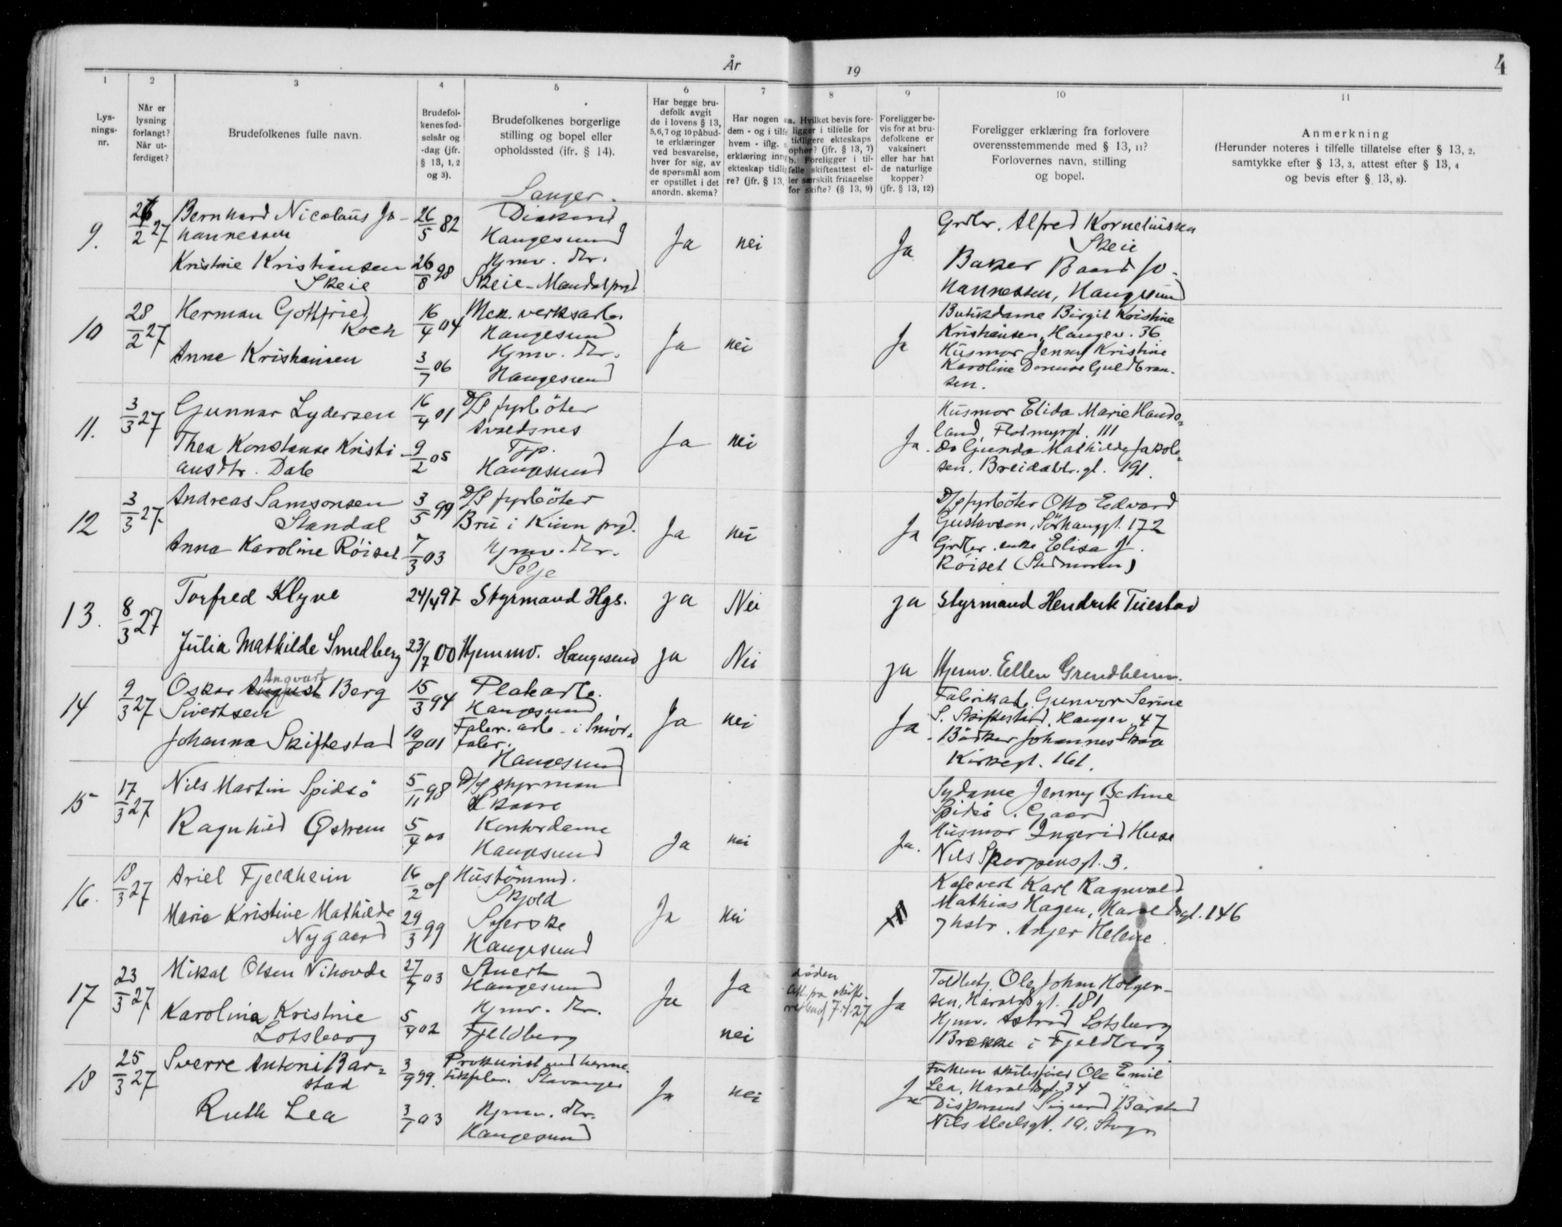 År 19
4
1
Lys-
nings-
nr.
2
Når er
lysning
forlangt?
Når ut-
ferdiget?
3
Brudefolkenes fulle navn.
4
Brudefol-
kenes fød-
selsår og
-dag (jfr.
§ 13, 1, 2
og 3).
5
Brudefolkenes borgerlige
stilling og bopel eller
opholdssted (jfr. § 14).
6
Har begge bru-
defolk avgit
de i lovens § 13,
5,6,7 og 10 påbud-
te erklæringer
ved besvarelse,
hver for sig, av
de spørsmål som
er opstillet i det
anordn. skema?
7
Har nogen av
dem - og i tilf
hvem - iflg.
erklæring inn
ekteskap tidli
re? (jfr. § 13,
8
a. Hvilket bevis fore-
ligger i tilfelle for
tidligere ekteskaps
ophør? (jfr. § 13, 7)
b. Foreligger i til-
felle skifteattest el-
ler særskilt fritagelse
for skifte? (§ 13, 9)
9
Foreligger be-
vis for at bru-
defolkene er
vaksinert
eller har hat
de naturlige
kopper?
(jfr. § 13, 12)
10
Foreligger erklæring fra forlovere
overensstemmende med § 13, 11?
Forlovernes navn, stilling
og bopel.
11
Anmerkning
(Herunder noteres i tilfelle tillatelse efter § 13, 2,
samtykke efter § 13, 3, attest efter § 13, 4
og bevis efter § 13, 8).
9.
26/2 27
Bernhard Nicolaus Jo-
hannessen
26/5 82
Sanger.
Diakond
Haugesund
Ja
nei
Ja
Grdbr. Alfred Korneliusen
Skeie
Kristine Kristiansen
Skeie
26/8 98
Hjmv. dtr.
Skeie - Mandal prgd
Baker Baard Jo-
hannessen, Haugesund
10
28/2 27
Herman Gottfried
Koch
16/4 04
Mek. verksarb.
Haugesund
Ja
nei
Ja
Butikdame Birgit Kristine
Kristiansen, Hauger. 36
Anne Kristiansen
3/7 06
Hjmv. dtr.
Haugesund
Husmor Jenny Kristine
Karoline Gulbran-
sen.
11.
3/3 27
Gunnar Lydersen
16/4 01
D/S fyrböter
Avaldsnes
Ja
nei
Ja.
Husmor Elida Marie Haade-
land, Flotmyrgt. 111
Thea Konstanse Kristi
ansdtr. Dale
9/2 05
Tjp.
Haugesund
do Gunda Mathilde Jakob-
sen. Breidablgt. 191.
12
3/3 27
Andreas Samsonsen
Standal
3/5 99
D/S fyrböter
Bru i Kinn prgd.
Ja
nei
Ja
D/S fyrböter Otto Edvard
Gustavson, Sörhauggt. 172
Anna Karoline Röiset
7/3 03
Hjmv. dtr.
Selje
Grdbr. enke Elisa J.
Röiset (Stedmoren)
13.
8/3 27
Torfred Klyve
24/4 97
Styrmand Hgs.
Ja
Nei
ja
Styrmand Hendrik Tuestad
Julia Mathilde Smedberg
23/7 00
Hjemmv. Haugesund
ja
Nei
ja
Hjemv. Ellen Grendheim.
14
9/3 27
Oskar August Angvart Berg
Sivertsen
15/3 94
Platearb.
Haugesund
Ja
nei
Ja.
Fabrikarb. Gunvor Serine
S. Skiftestad. Hauger. 47
Johanna Skiftestad
10/8 01
Fabr. arb. i Smör-
fabr.
Haugesund
Bödker Johannes Skaar
Kirkegt. 161.
15
17/3 27
Nils Martin Spidsö
5/11 98
D/S styrman
Skaare
Ja
nei
Ja.
Sydame Jenny Bertine
Spidsö. Gaard
Ragnhild Østrem
5/4 00
Kontordame
Haugesund
Husmor Ingerid Huse
Nils Skorpensgt. 3.
16.
18/3 27
Ariel Fjeldheim
16/2 01
Hustömmd.
Skjold
Ja
nei
Kafevert Karl Ragnvald
Mathias Hagen, Haraldsgt. 146
Marie Kristine Mathilde
Nygaard
29/3 99
Syerske
Haugesund
7hstr. Anger Helene
17
23/3 27
Mikal Olsen Vikovde
27/7 03
Stuert
Haugesund
Ja
Ja
döden
Att. fra skift-
7-1-27
Ja
Toldbetj. Ole Johan Holger-
sen, Haraldsgt. 181
Karolina Kristine
Lotsberg
5/4 02
Hjmv. dtr.
Fjeldberg
nei
Hjmv. Astrid Lotsberg
Brekke i Fjeldberg
18
25/3 27
Sverre Antoni Bar-
stad
3/9 99.
Prokurist ved herme-
tikfabr. Stavanger
Ja
nei
Ja
Ole Emil
Lea, Haraldsgt. 34
Ruth Lea
3/7 03
Hjmv. dtr.
Haugesund
Disponent Sigurd Barstad
Nils